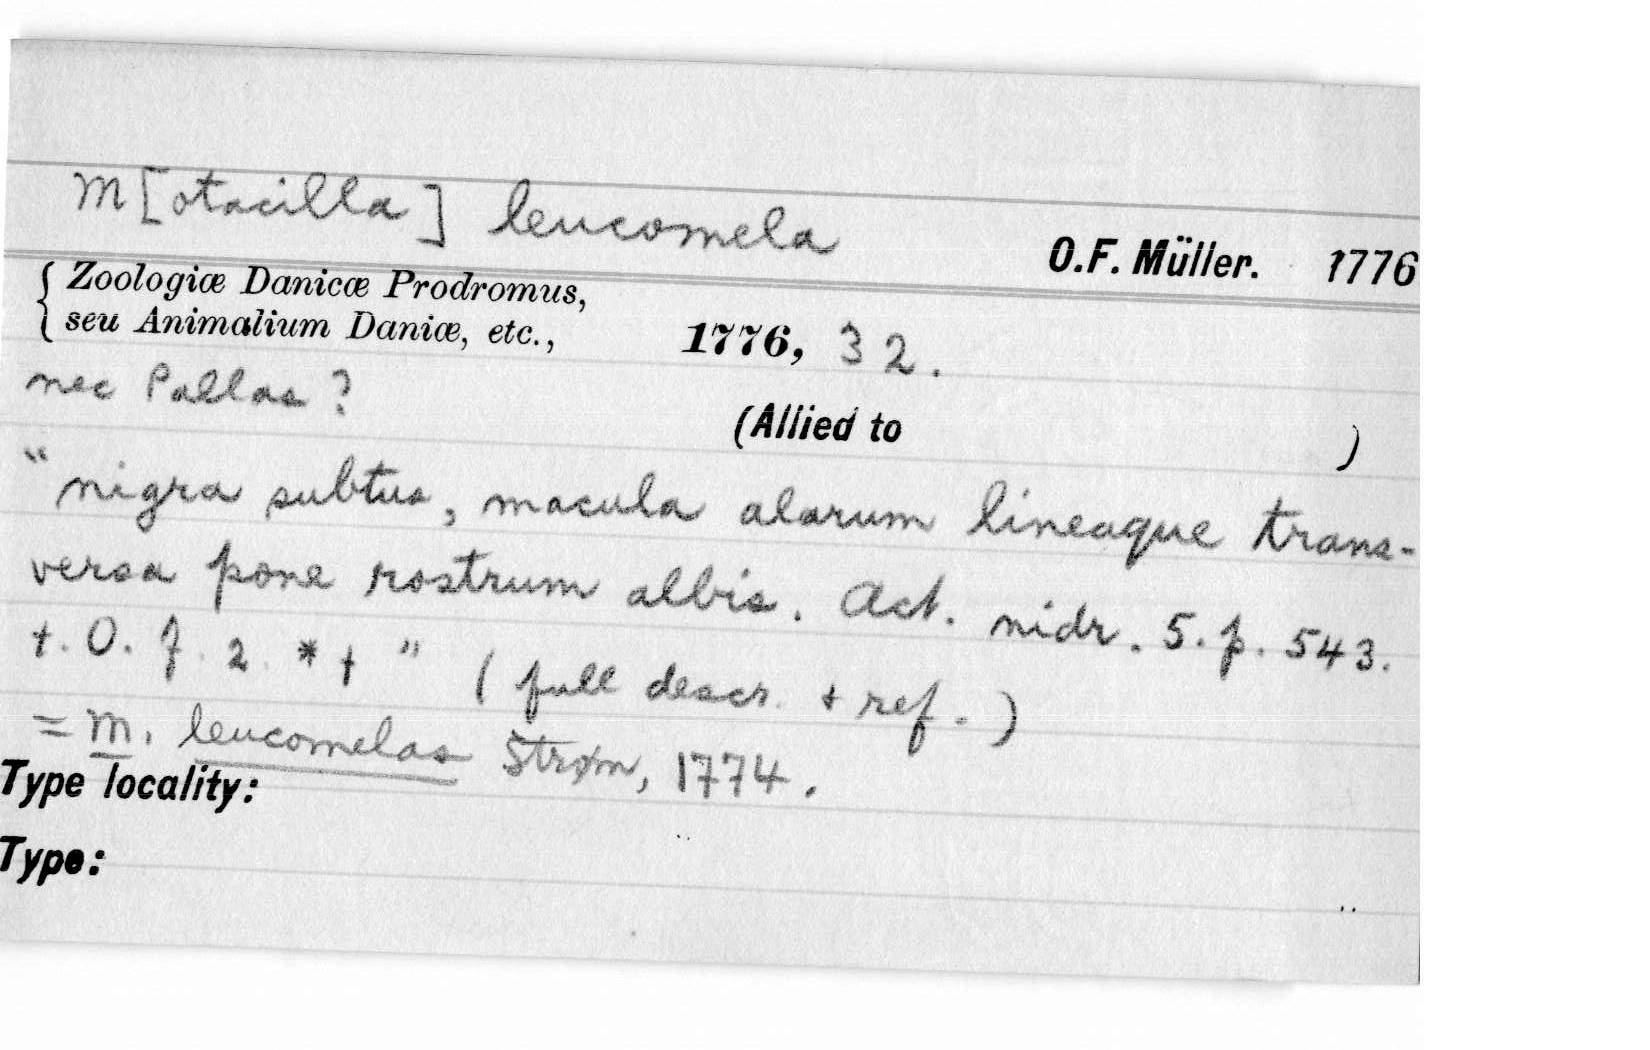 M[otacilla] leucomela
O.F. Müller. 1776
Zoologiæ Danicæ Prodromus,
seu Animalium Daniæ, etc., 1776, 32.
nec Pallas?
(Allied to )
"nigra subtus, macula alarum lineaque trans-
versa pone rostrum albis. Act. nidr. 5. p. 543.
t. O. f. 2. * † " (full descr. + ref.)
= M. leucomelas Strøm, 1774.
Type locality:
Type: